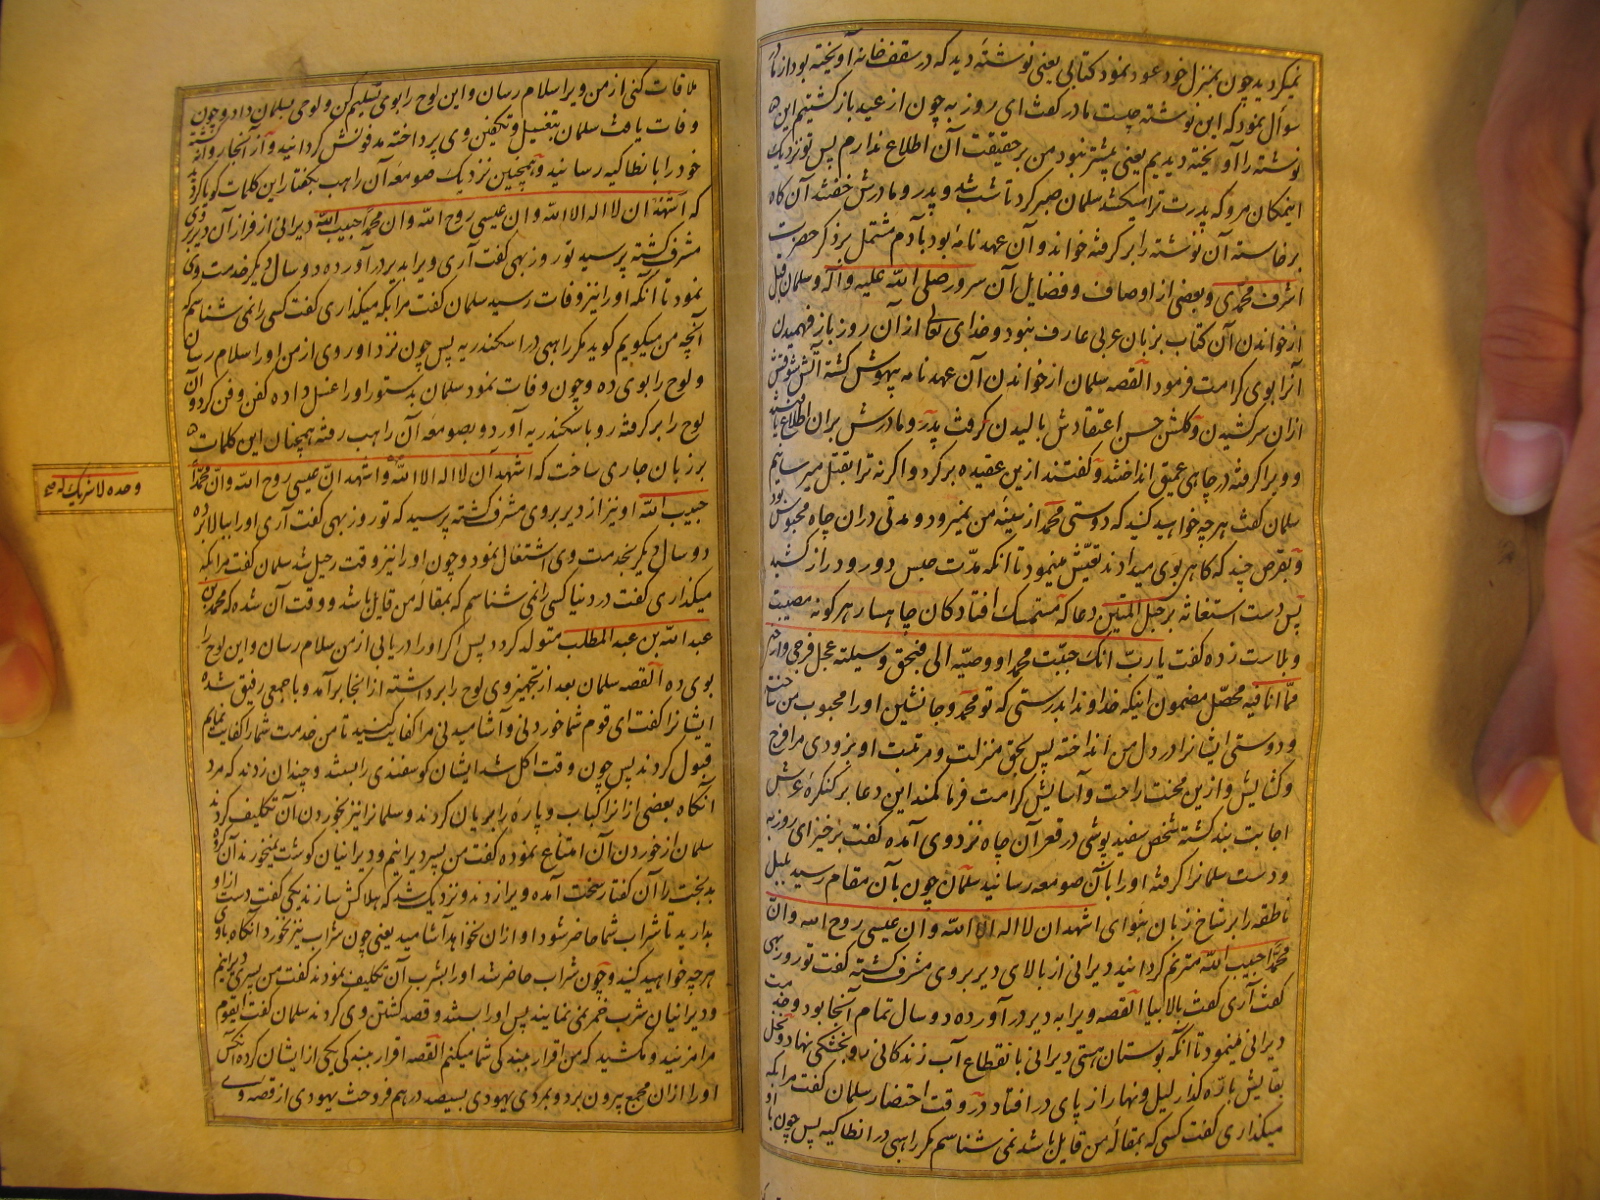 نمیکردید چون بمنزل خود عود نمود کتابی یعنی نوشتهٔ دید که در سقف خانه آویخته بود از مادر
سوال نمود که این نوشته چیست مادر گفت ای روزبه چون از عید بازگشتیم این
نوشته را آویخته دیدیم یعنی پیشتر نبود من بر حقیقت آن اطلاع ندارم پس تو نزدیک
اینمکان مرو که پدرت ترا میکشد سلمان صبر کرد تا شب شد و پدر و مادرش خفتند آن کاه
برخاسته آن نوشته را برگرفته خواند و آن عهدنامهٔ بود بآدم مشتمل بر ذکر حضرت
اشرف محمدی و بعضی از اوصاف و فضایل آن سرور صلی الله علیه و آله و سلمان قبل
از خواندن آن کتاب بزبان عربی عارف نبود و خدای تعالی از آن روز باز فهمیدن
آنرا بوی کرامت فرمود القصه سلمان از خواندن آن عهدنامه بیهوش کشته آتش شوقش
ازان سر کشیدن و کلشن حسن اعتقادش بالیدن گرفت پدر و مادرش بران اطلاع یافتند
و ویرا گرفته در چاهی عمیق انداختند و گفتند ازین عقیده برگرد و اگر نه ترا بقتل میرسانیم
سلمان گفت هرچه خواهید کنید که دوستی محمد از سینهٔ من نمیرود و مدتی دران چاه محبوس بود
و بقرص چند که کاهی بوی میدادند تعیش مینمود تا آنکه مدت حبس دور و دراز کشید
پس دست استغاثه بر حبل المتین دعا که مستمسک افتادکان چاهسار هرگونه مصیبت
و بلاست زده گفت یا رب انک حببت محمدا و وصیه الی فبحق وسیلته عجل فرجی و ارحنی
مما انا فیه محصل مضمون اینکه خداوندا بدرستی که تو محمد و جانشین او را محبوب من ساختی
و دوستی ایشانرا در دل من انداخته پس بحق منزلت و مرتبت او بزودی مرا فرج
و کشایش و ازین محنت راحت و آسایش کرامت فرما کمند این دعا بر کنکرهٔ عرش
اجابت بند کشته شخص سفیدپوشی در قعر آن چاه نزد وی آمده گفت برخیز ای روزبه
و دست سلمانرا گرفته او را بآن صومعه رسانید سلمان چون بآن مقام رسید بلبل
ناطقه را بر شاخ زبان بنوای اشهد ان لا اله الا الله و ان عیسی روح الله و ان
محمدا حبیب الله مترنم کردانید دیرانی از بالای دیر بر وی مشرف کشته گفت تو روزبهی
گفت آری گفت بالا بیا القصه ویرا به دیر درآورده دو سال تمام آنجا بود و خدمت
دیرانی مینمود تا آنکه بوستان هستی دیرانی بانقطاع آب زندگانی رو بخشکی نهاد و نخل
بقایش باره گذار لیل و نهار از پای در افتاد در وقت احتضار سلمان گفت مرا بکه
میگذاری گفت کسی که بمقاله من قایل باشد نمی شناسم مگر راهبی در انطاکیه پس چون با او
ملاقات کنی از من ویرا سلام رسان و این لوح را بوی تسلیم کن و لوحی بسلمان داد و چون
وفات یافت سلمان بتغسیل و تکفین وی پرداخته مدفونش گردانید و از آنجا روانه گشته
خود را بانطاکیه رسانید و همچنین نزدیک صومعه آن راهب بگفتار این کلمات کویا گردید
که اشهد ان لا اله الا الله و ان عیسی روح الله و ان محمدا حبیب الله دیرانی از فراز آن دیر بر وی
مشرف کشته پرسید تو روزبهی گفت آری ویرا بدیر درآورده دو سال دیگر خدمت وی
نمود تا آنکه او را نیز وفات رسید سلمان گفت مرا بکه میگذاری گفت کسی را نمی شناسم که
آنچه من میگویم گوید مگر راهبی در اسکندریه پس چون نزد او روی از من او را سلام رسان
و لوح را بوی ده و چون وفات نمود سلمان بدستور او را غسل داده کفن و دفن کرد و آن
لوح را برگرفته رو باسکندریه آورد و بصومعه آن راهب رفته همچنان این کلمات
بر زبان جاری ساخت که اشهد ان لا اله الا الله و اشهد ان عیسی روح الله و ان محمدا
وحده لا شریک له صح
حبیب الله او نیز از دیر بر وی مشرف کشته پرسید که تو روزبهی گفت آری او را ببالا برده
دو سال دیگر بخدمت وی اشتغال نمود و چون او را نیز وقت رحیل شد سلمان گفت مرا بکه
میگذاری گفت در دنیا کسی را نمی شناسم که بمقاله من قایل باشد و وقت آن شده که محمد بن
عبد الله بن عبد المطلب متولد گردد پس اگر او را دریابی از من سلام رسان و این لوح را
بوی ده القصه سلمان بعد از تجهیز وی لوح را برداشته از آنجا برآمد و با جمعی رفیق شده
ایشانرا گفت ای قوم شما خوردنی و آشامیدنی مرا کفایت کنید تا من خدمت شما را کفایت نمایم
قبول کردند پس چون وقت اکل شد ایشان گوسفندی را بستند و چندان زدند که مرد
آنکاه بعضی ازانرا کباب و پاره را بریان کردند و سلمانرا نیز بخوردن آن تکلیف کردند
سلمان از خوردن آن امتناع نموده گفت من پسر دیرانیم و دیرانیان گوشت نمیخورند آن گروه
بدبخت را آن گفتار سخت آمده ویرا زدند و نزدیک شد که هلاکش سازند یکی گفت دست از او
بدارید تا شراب شما حاضر شود او ازان نخواهد آشامید یعنی چون شراب نیز نخورد آنکاه با وی
هرچه خواهید کنید و چون شراب حاضر شد او را بشرب آن تکلیف نمودند گفت من پسر دیرانیم
و دیرانیان شرب خمر نمی نمایند پس او را بستند و قصد کشتن وی کردند سلمان گفت ای قوم
مرا مزنید و مکشید که من اقرار ببندکی شما میکنم القصه اقرار ببندکی یکی از ایشان کرده آنکس
او را ازان مجمع بیرون برد و بمردی یهودی بسیصد درهم فروخت یهودی از قصه وی